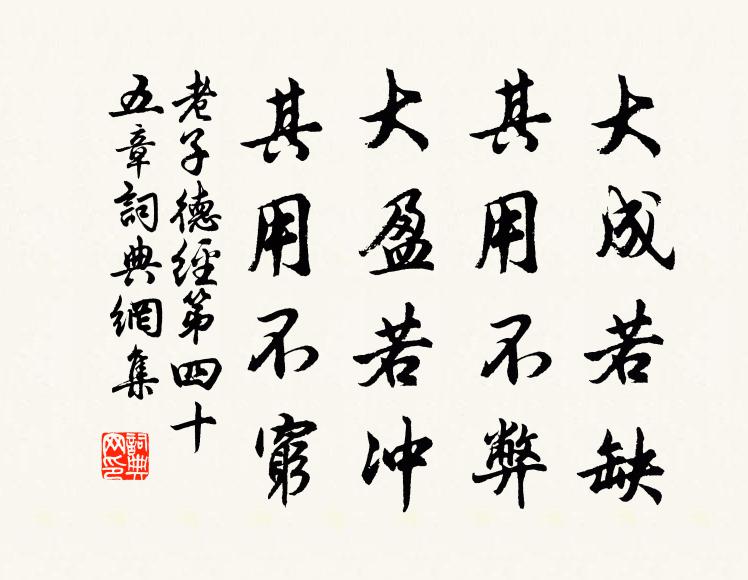 大成若缺
其用不弊
大盈若冲
其用不窮
老子德經第四十
五章詞典網集
詞典
网印